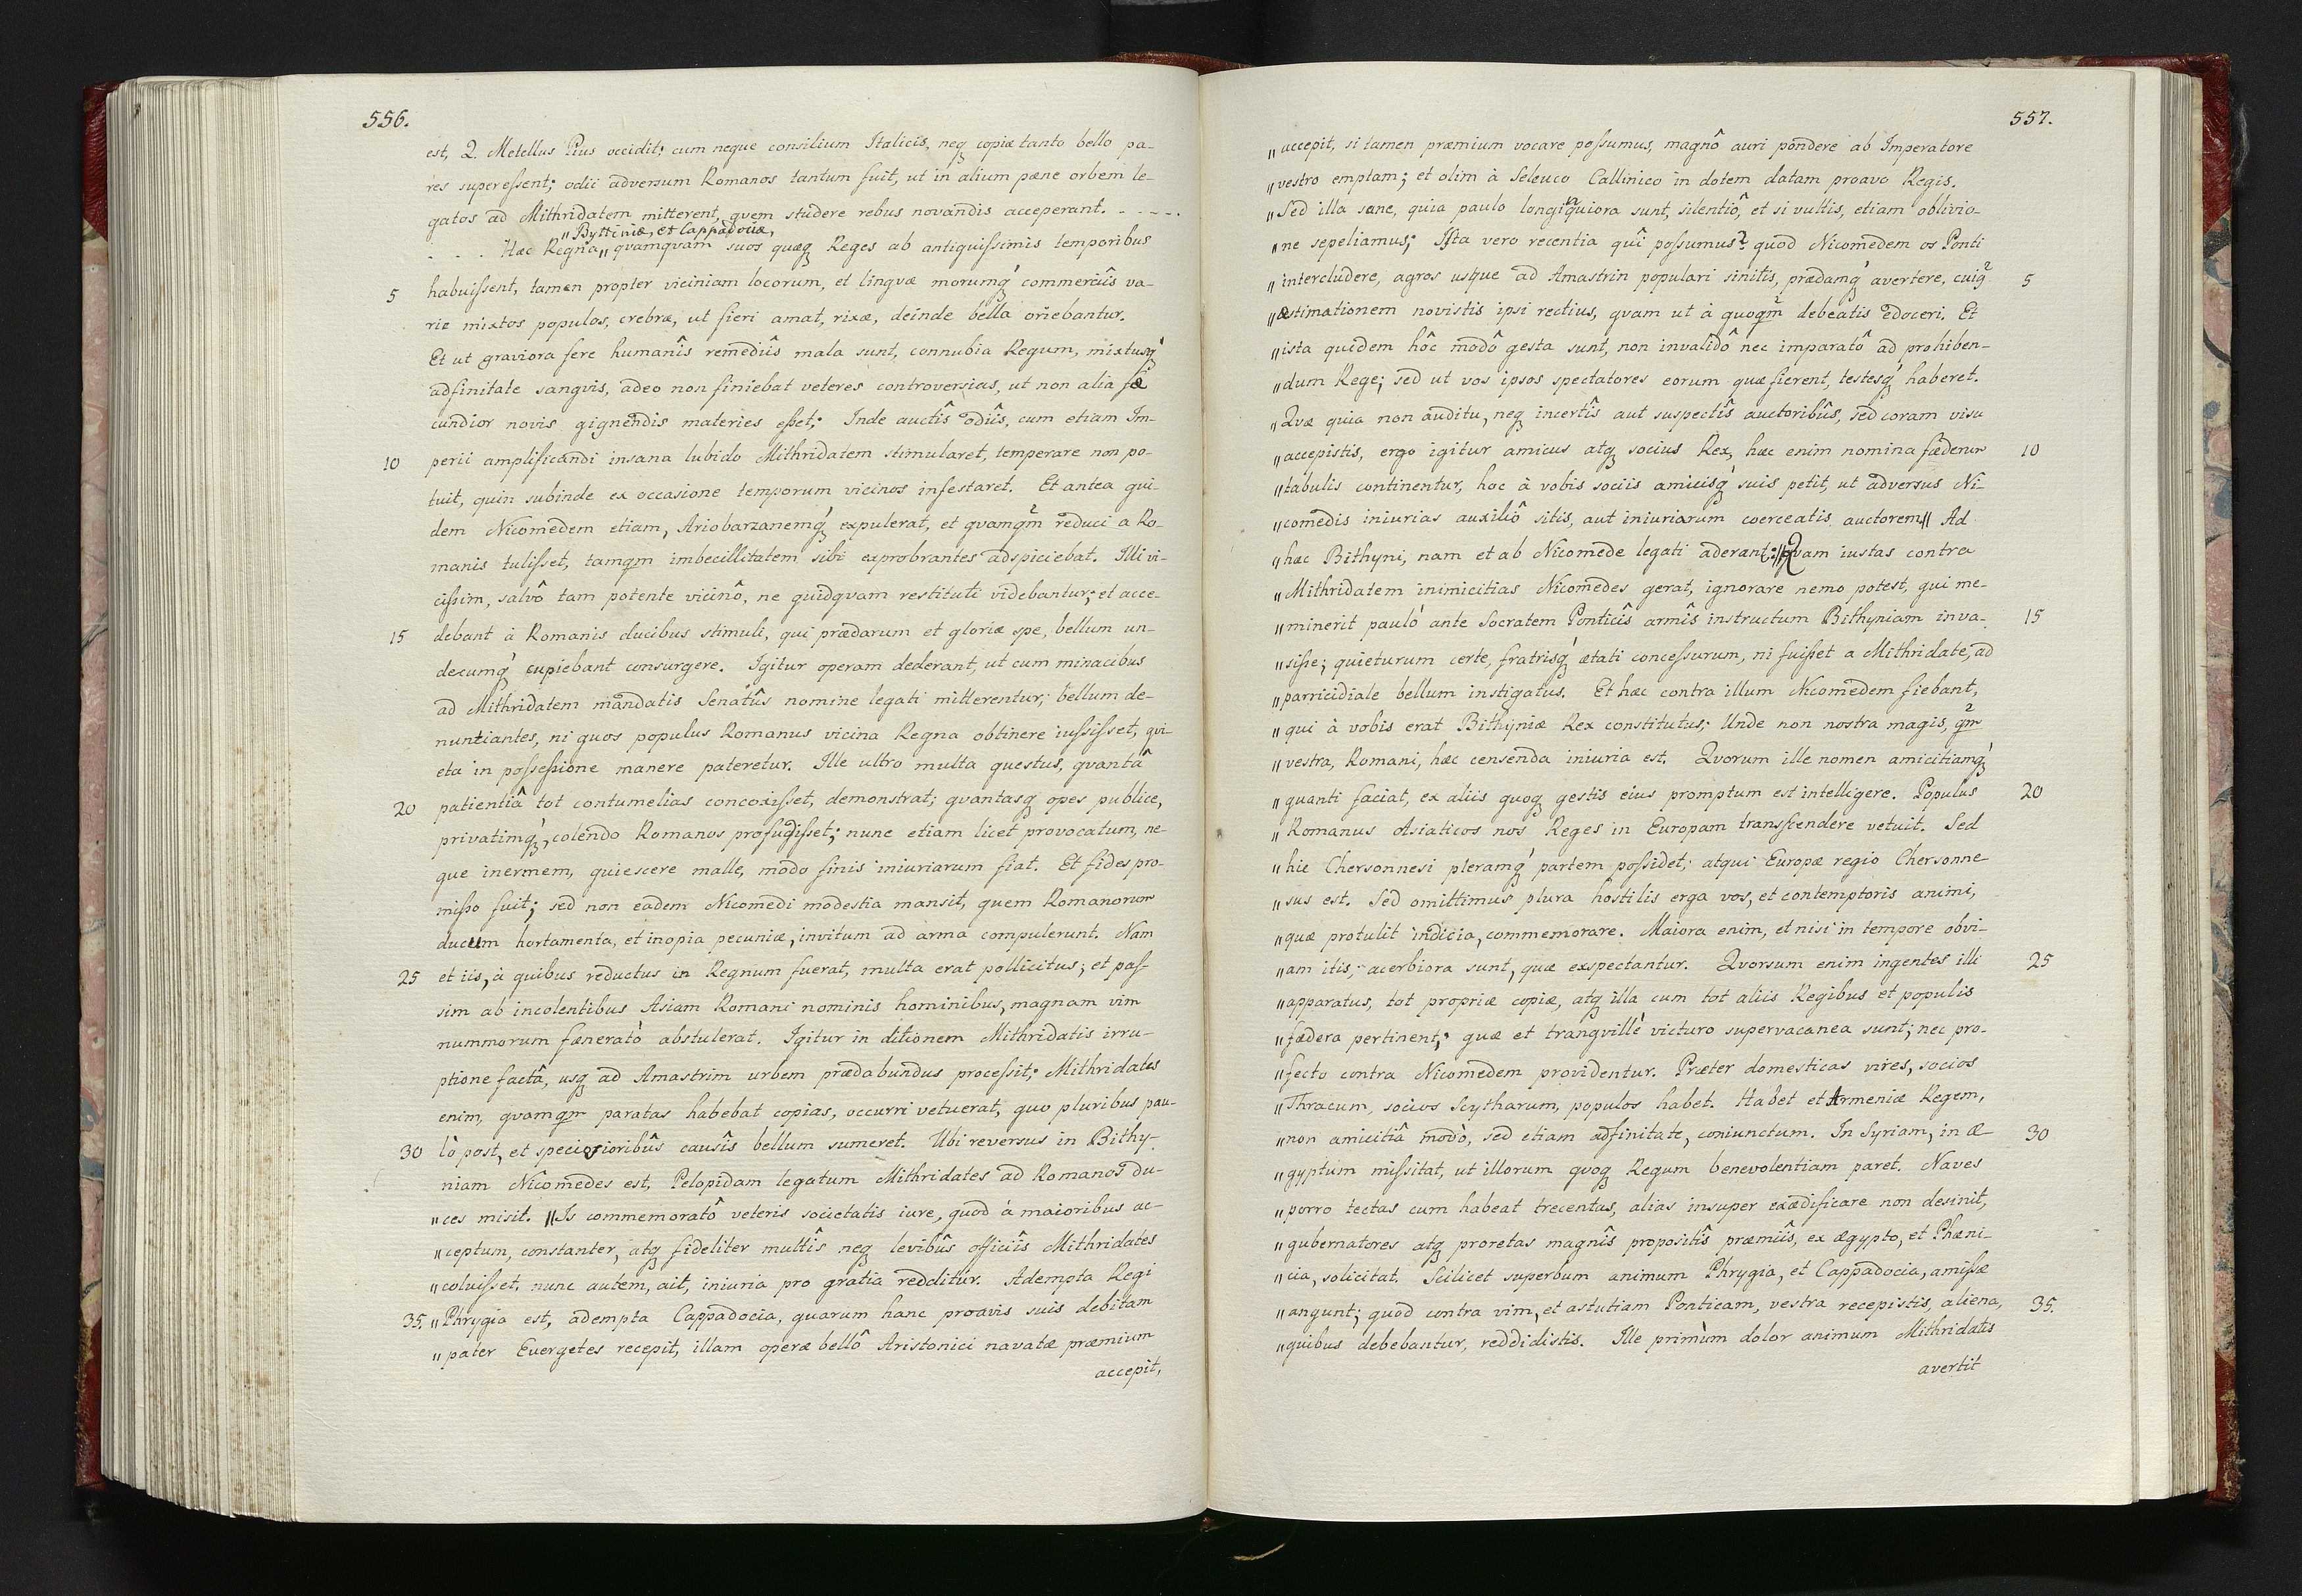 556.
est, Q. Metellus Pius occidit; cum neque consilium Italicis, neq copiæ tanto bello pa-
res superessent; odii adversum Romanos tantum fuit, ut in alium pæne orbem le-
gatos ad Mithridatem mitterent, qvem studere rebus novandis acceperant. - - - - -
„Byttiniæ, et Cappadociæ,
- - - Hæc Regna„ qvamqvam suos quæq Reges ab antiquissimis temporibus
5 habuissent, tamen propter viciniam locorum, et lingvæ morumq́ commerciîs va-
rie mixtos populos, crebræ, ut fieri amat, rixæ, deinde bella oriebantur.
Et ut graviora fere humanîs remediîs mala sunt, connubia Regum, mixtusq́
adfinitate sangvis, adeo non finiebat veteres controversias, ut non alia fæ
cundior novis gignendis materies esset; Inde auctîs odiîs, cum etiam Im-
10 perii amplificandi insana lubido Mithridatem stimularet, temperare non po-
tuit, quin subinde ex occasione temporum vicinos infestaret. Et antea qui
dem Nicomedem etiam, Ariobarzanemq́ expulerat, et qvamqm reduci a Ro-
manis tulisset, tamqm imbecillitatem sibi exprobrantes adspiciebat. Illi vi-
cissim, salvô tam potente vicinô, ne quidqvam restituti videbantur; et acce-
15 debant à Romanis ducibus stimuli, qui prædarum et gloriæ spe, bellum un-
decumq́ cupiebant consurgere. Igitur operam dederant, ut cum minacibus
ad Mithridatem mandatis Senatûs nomine legati mitterentur; bellum de-
nuntiantes, ni quos populus Romanus vicina Regna obtinere iussisset, qvi-
eta in possessione manere pateretur. Ille ultro multa questus, qvantâ
20 patientiâ tot contumelias concoxisset, demonstrat; qvantasq opes publice,
privatimq́, colendo Romanos profudisset; nunc etiam licet provocatum, ne-
que inermem, quiescere malle, modo finis iniuriarum fiat. Et fides pro-
misso fuit; sed non eadem Nicomedi modestia mansit, quem Romanorum
ducum hortamenta, et inopia pecuniæ, invitum ad arma compulerunt. Nam
25 et iis, à quibus reductus in Regnum fuerat, multa erat pollicitus; et pas-
sim ab incolentibus Asiam Romani nominis hominibus, magnam vim
nummorum fænerato abstulerat. Igitur in ditionem Mithridatis irru-
ptione factâ, usq ad Amastrim urbem prædabundus processit; Mithridates
enim, qvamqm paratas habebat copias, occurri vetuerat, quo pluribus pau-
30 lò post, et speciosioribûs causîs bellum sumeret. Ubi reversus in Bithy-
niam Nicomedes est, Pelopidam legatum Mithridates ad Romanos du-
„ces misit. „Is commemoratô veteris societatis iure, quod à maioribus ac-
„ceptum, constanter, atq fideliter multîs neq levibûs officiîs Mithridates
„coluisset, nunc autem, ait, iniuria pro gratia redditur. Adempta Regi
35. „Phrygia est, adempta Cappadocia, quarum hanc proavis suis debitam
„pater Evergetes recepit, illam operæ bellô Aristonici navatæ præmium
accepit,
557.
„accepit, si tamen præmium vocare possumus, magnô auri pondere ab Imperatore
„vestro emptam; et olim à Seleuco Callinico in dotem datam proavo Regis.
„Sed illa sane, quia paulo longiquiora sunt, silentiô, et si vultis, etiam oblivio-
„ne sepeliamus; Ista vero recentia quî possumus? quod Nicomedem os Ponti
„intercludere, agros usque ad Amastrin populari sinitis, prædamq́ avertere, cuiq 5
„æstimationem novistis ipsi rectius, qvam ut à quoqm debeatis edoceri. Et
„ista quidem hôc modô gesta sunt, non invalidô nec imparatô ad prohiben-
„dum Rege; sed ut vos ipsos spectatores eorum quæ fierent, testesq́ haberet.
„Qvæ quia non auditu, neq incertîs aut suspectîs auctoribûs, sed coram visu
„accepistis, ergo igitur amicus atq socius Rex, hæc enim nomina fæderum 10
„tabulis continentur, hoc à vobis sociis amicisq́ suis petit, ut adversus Ni-
„comedis iniurias auxiliô sitis, aut iniuriarum coerceatis auctorem„ Ad
„hæc Bithyni, nam et ab Nicomede legati aderant: „Qvam iustas contra
„Mithridatem inimicitias Nicomedes gerat, ignorare nemo potest, qui me-
„minerit paulò ante Socratem Ponticîs armîs instructum Bithyniam inva- 15
„sisse; quieturum certe, fratrisq́ ætati concessurum, ni fuisset a Mithridate, ad
„parricidiale bellum instigatus. Et hæc contra illum Nicomedem fiebant,
„qui à vobis erat Bithyniæ Rex constitutus; Unde non nostra magis, qm
„vestra, Romani, hæc censenda iniuria est. Qvorum ille nomen amicitiamq́
„quanti faciat, ex aliis quoq gestis eius promptum est intelligere. Populus 20
„Romanus Asiaticos nos Reges in Europam transscendere vetuit. Sed
„hic Chersonnesi pleramq́ partem possidet; atqui Europæ regio Chersonne-
„sus est. Sed omittimus plura hostilis erga vos, et contemptoris animi,
„quæ protulit indicia, commemorare. Maiora enim, et nisi in tempore obvi-
„am itis, acerbiora sunt, quæ exspectantur. Qvorsum enim ingentes illi 25
„apparatus, tot propriæ copiæ, atq illa cum tot aliis Regibus et populis
„fædera pertinent; quæ et tranqvillè victuro supervacanea sunt; nec pro-
„fecto contra Nicomedem providentur. Præter domesticas vires, socios
„Thracum, socios Scytharum, populos habet. Habet et Armeniæ Regem,
„non amicitiâ modò, sed etiam adfinitate, coniunctum. In Syriam, in Æ- 30
„gyptum missitat, ut illorum qvoq Regum benevolentiam paret. Naves
„porro tectas cum habeat trecentas, alias insuper exædificare non desinit,
„gubernatores atq proretas magnîs propositîs præmiîs, ex Ægypto, et Phæni-
„cia, solicitat. Scilicet superbum animum Phrygia, et Cappadocia, amissæ
„angunt; quod contra vim, et astutiam Ponticam, vestra recepistis, aliena, 35.
„quibus debebantur, reddidistis. Ille primùm dolor animum Mithridatis
avertit